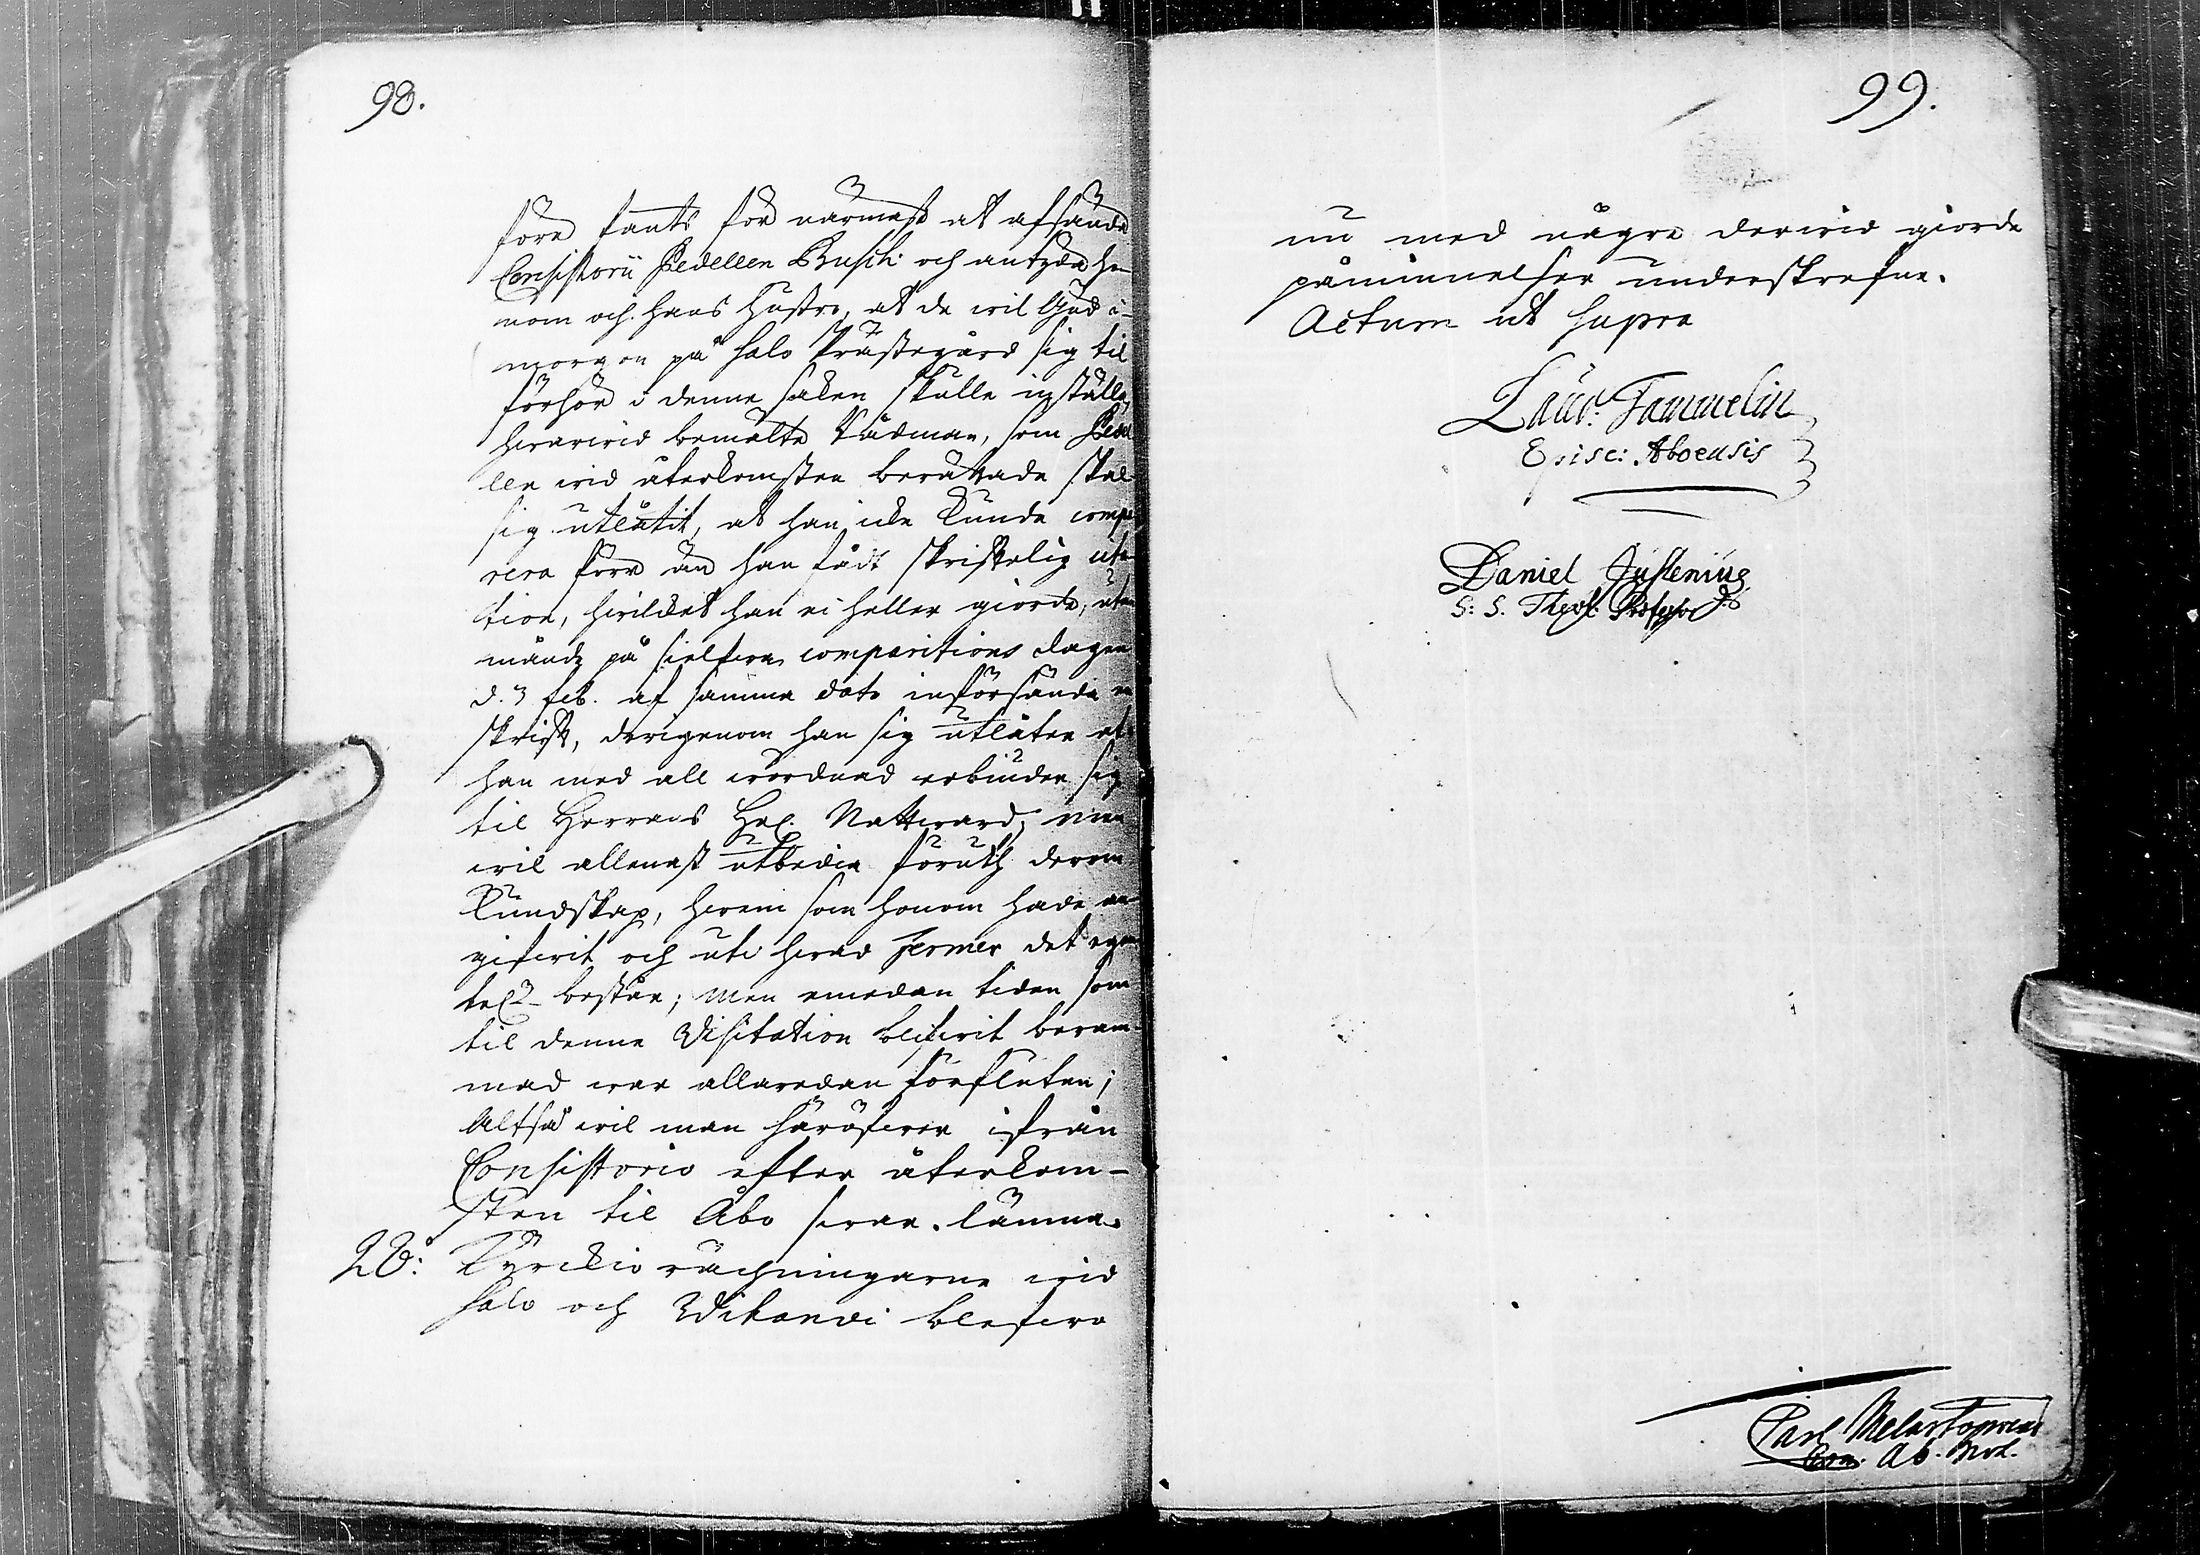 98.
före fants för närmast at afsända
Consistorii Bedellen Busch och antyda ho-
nom och hans hustro, at de wil Gud i-
morgon på Salo Prästegård sig til
förhör i denne saken skulle inställa,
hwarwid bemälte Rådman, som Bedel
len wid återkomsten berättade skal
sig utlåtit, at han icke kunde compa
rera förr än han fådt skriftelig cita
tion, hwilket han ei heller giorde, utan
mände på sielfwa comparitions dagen
d. 3 feb. af samma dato införsända en
skrift, derigenom han sig utlåter at
han med all wördnad erbinder sig
til Herrans Hel. Nattward, men
wil allenast utbedia föruth derom
kundskap, hwem som honom hade an-
gifwit och uti hwad termer det egen
tel. består; men emedan tiden som
til denne Visitation blifwit beram-
mad war allaredan förfluten;
Altså wil man häröfwer ifrån
Consistorio efter återkom-
sten til Åbo swar lämna.
28: Kyrckio räckningarne wid
Salo och Wihandi blefwo
99.
nu med någre derwid giorde
påminnelser underskrefne.
Actum ut supra
Laur. Tammelin
Episc: Aboensis
Daniel Juslenius
S: S. Theol. Professor
Carl Melartopoeus
Con. Ab. Not.